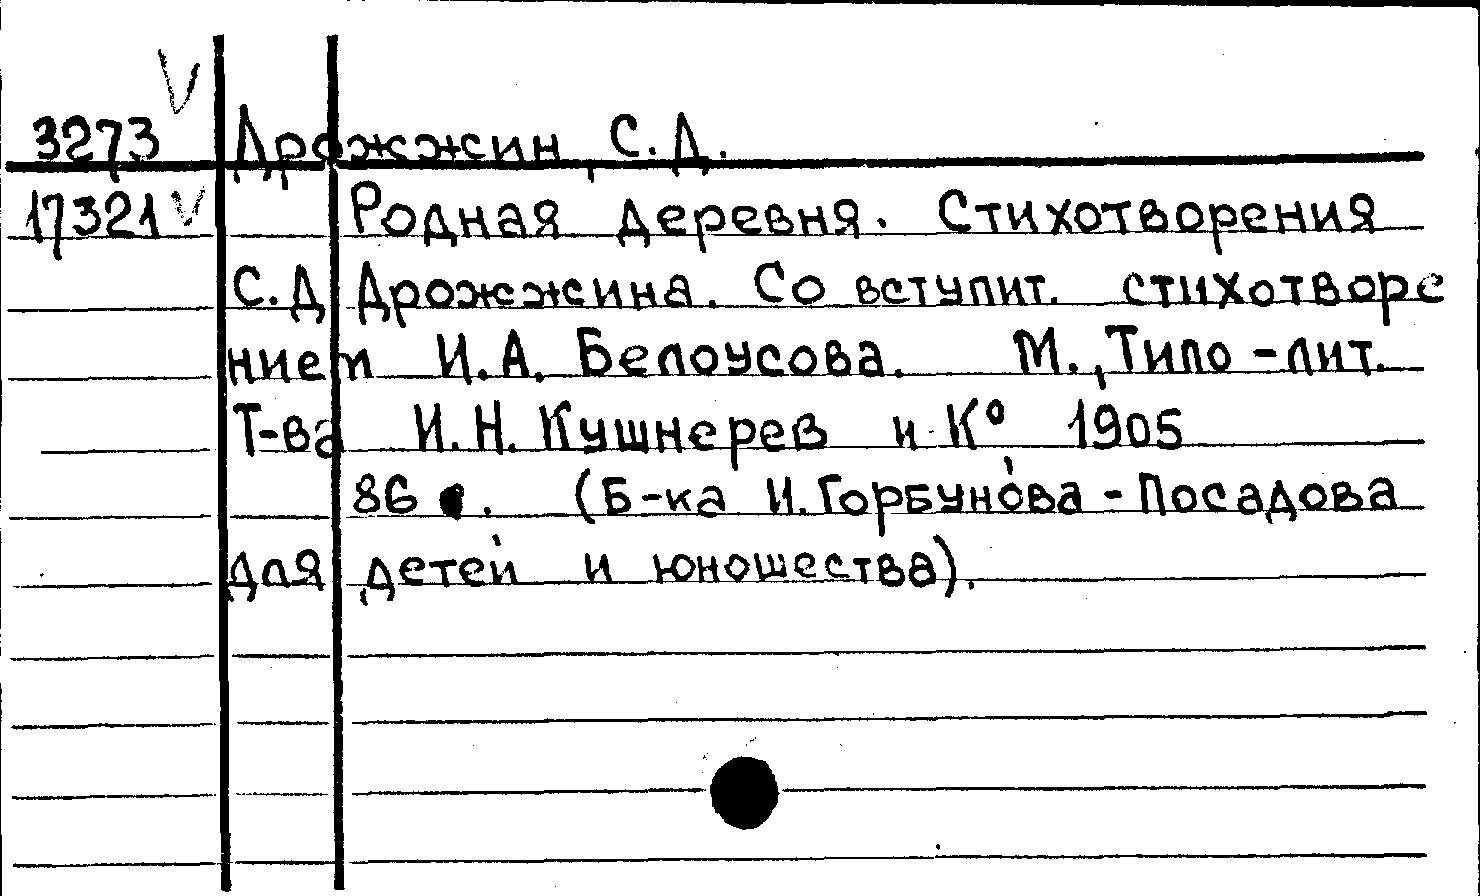 3273 Дрожжин, С.Д.
17321 Родная деревня. Стихотворения
С.Д Дрожжина. Со вступит. стихотворе
нием И.А. Белоусова. М., Типо-лит.
Т-ва И.Н. Кушнерев и К° 1905
86 с. (Б-ка И. Горбунова-Посадова
для детей и юношества).